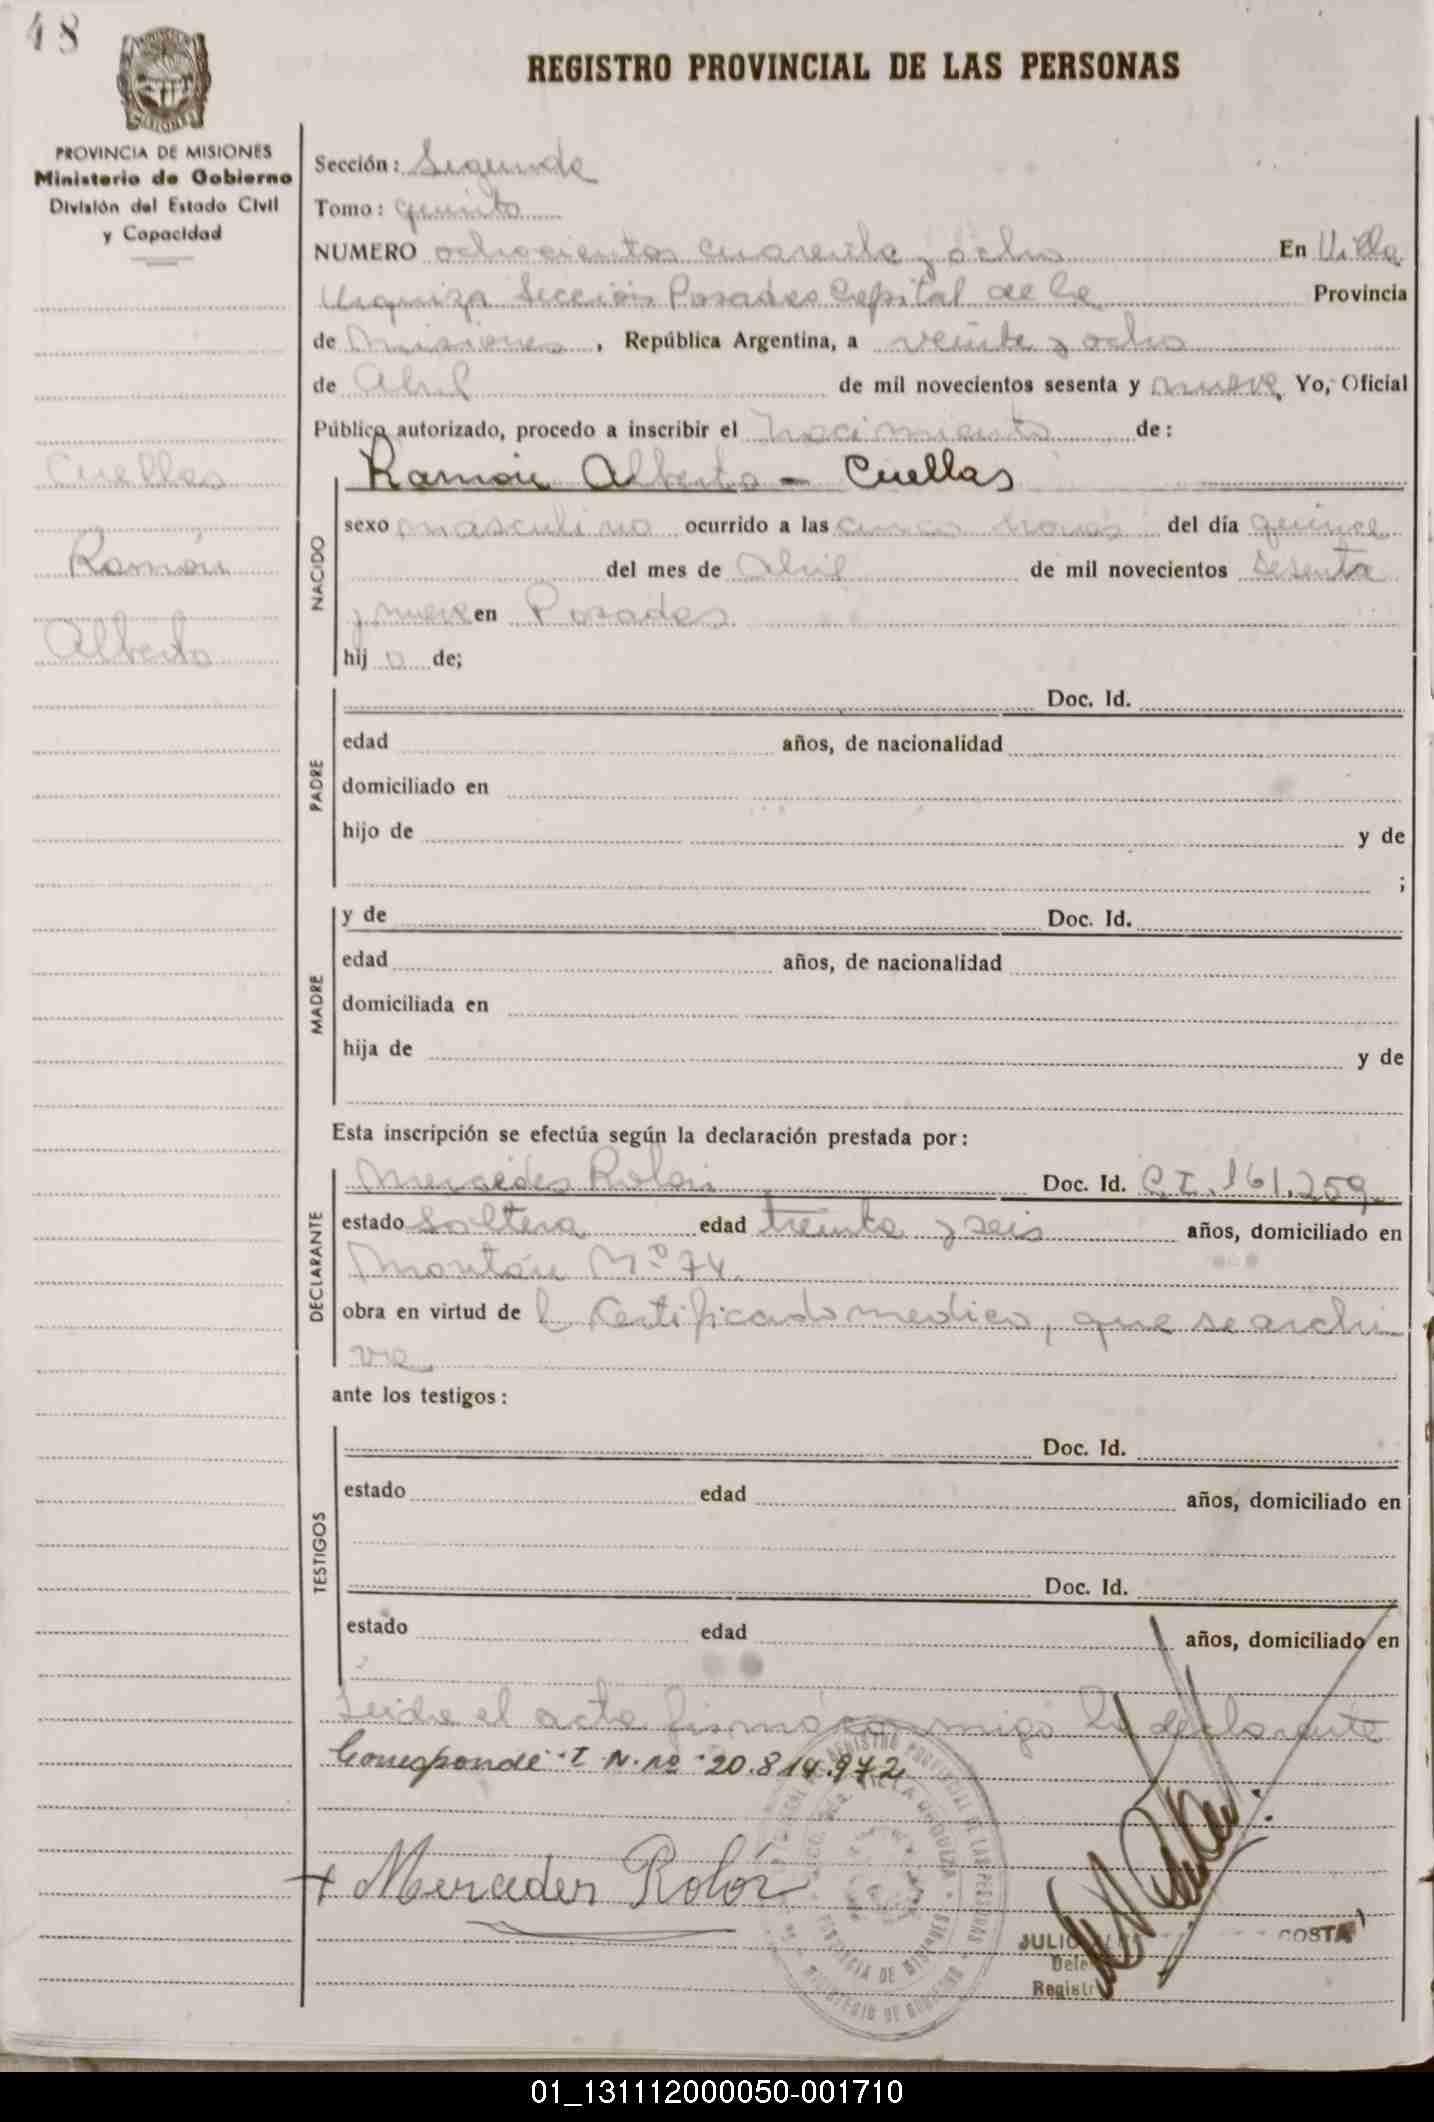 48
REGISTRO PROVINCIAL DE LAS PERSONAS
PROVINCIA DE MISIONES
Ministerio de Gobierno
División del Estado Civil
y Capacidad
Cuellas
Ramón
Alberto
Sección: Segunda
Tomo: quinto
NUMERO ochocientos cuarenta y ocho En Villa
Urquiza Sección Posadas Capital de la Provincia
de Misiones, República Argentina, a veinte y ocho
de Abril de mil novecientos sesenta y nueve, Yo, Oficial
Público autorizado, procedo a inscribir el Nacimiento de:
NACIDO
Ramón Alberto - Cuellas
sexo masculino ocurrido a las cinco horas del día quince
del mes de Abril de mil novecientos sesenta
y nueve en Posadas
hij o de;
PADRE
Doc. Id.
edad años, de nacionalidad
domiciliado en
hijo de y de
;
MADRE
y de Doc. Id.
edad años, de nacionalidad
domiciliada en
hija de y de
Esta inscripción se efectúa según la declaración prestada por:
DECLARANTE
Mercedes Rolón Doc. Id. C.I. 161.259
estado soltera edad treinta y seis años, domiciliado en
Montón Nº 74.
obra en virtud de l Certificado medico, que se archi
va
ante los testigos:
TESTIGOS
Doc. Id.
estado edad años, domiciliado en
Doc. Id.
estado edad años, domiciliado en
Leida el acta firmó conmigo la declarante
Corresponde I N. nº 20.814.972
+ Mercedes Rolón
REGISTRO PROVINCIAL DE LAS PERSONAS
VILLA URQUIZA
PROVINCIA DE MISIONES
MINISTERIO DE GOBIERNO
JULIO COSTA
Dele
Registr
01_131112000050-001710